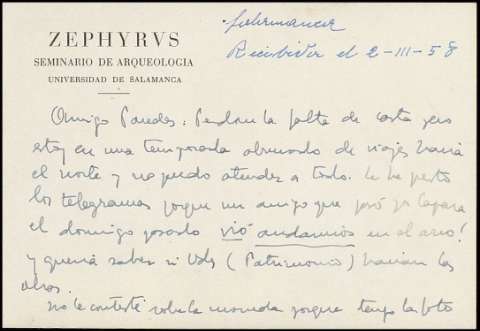 ZEPHYRVS
SEMINARIO DE ARQUEOLOGIA
UNIVERSIDAD DE SALAMANCA
Recibida el 2-III-58
Amigo Paredes: Perdone la falta de carta pero
estoy en una temporada abrumado de viajes hacia
el norte y no puedo atender a todo. Le he puesto
los telegramas porque un amigo que pasó por Caparra
el domingo pasado vió andamios en el arco!
y queria saber si Vds (Patrimonio) hacian las
obras.
No le contesté sobre la moneda porque tengo la foto